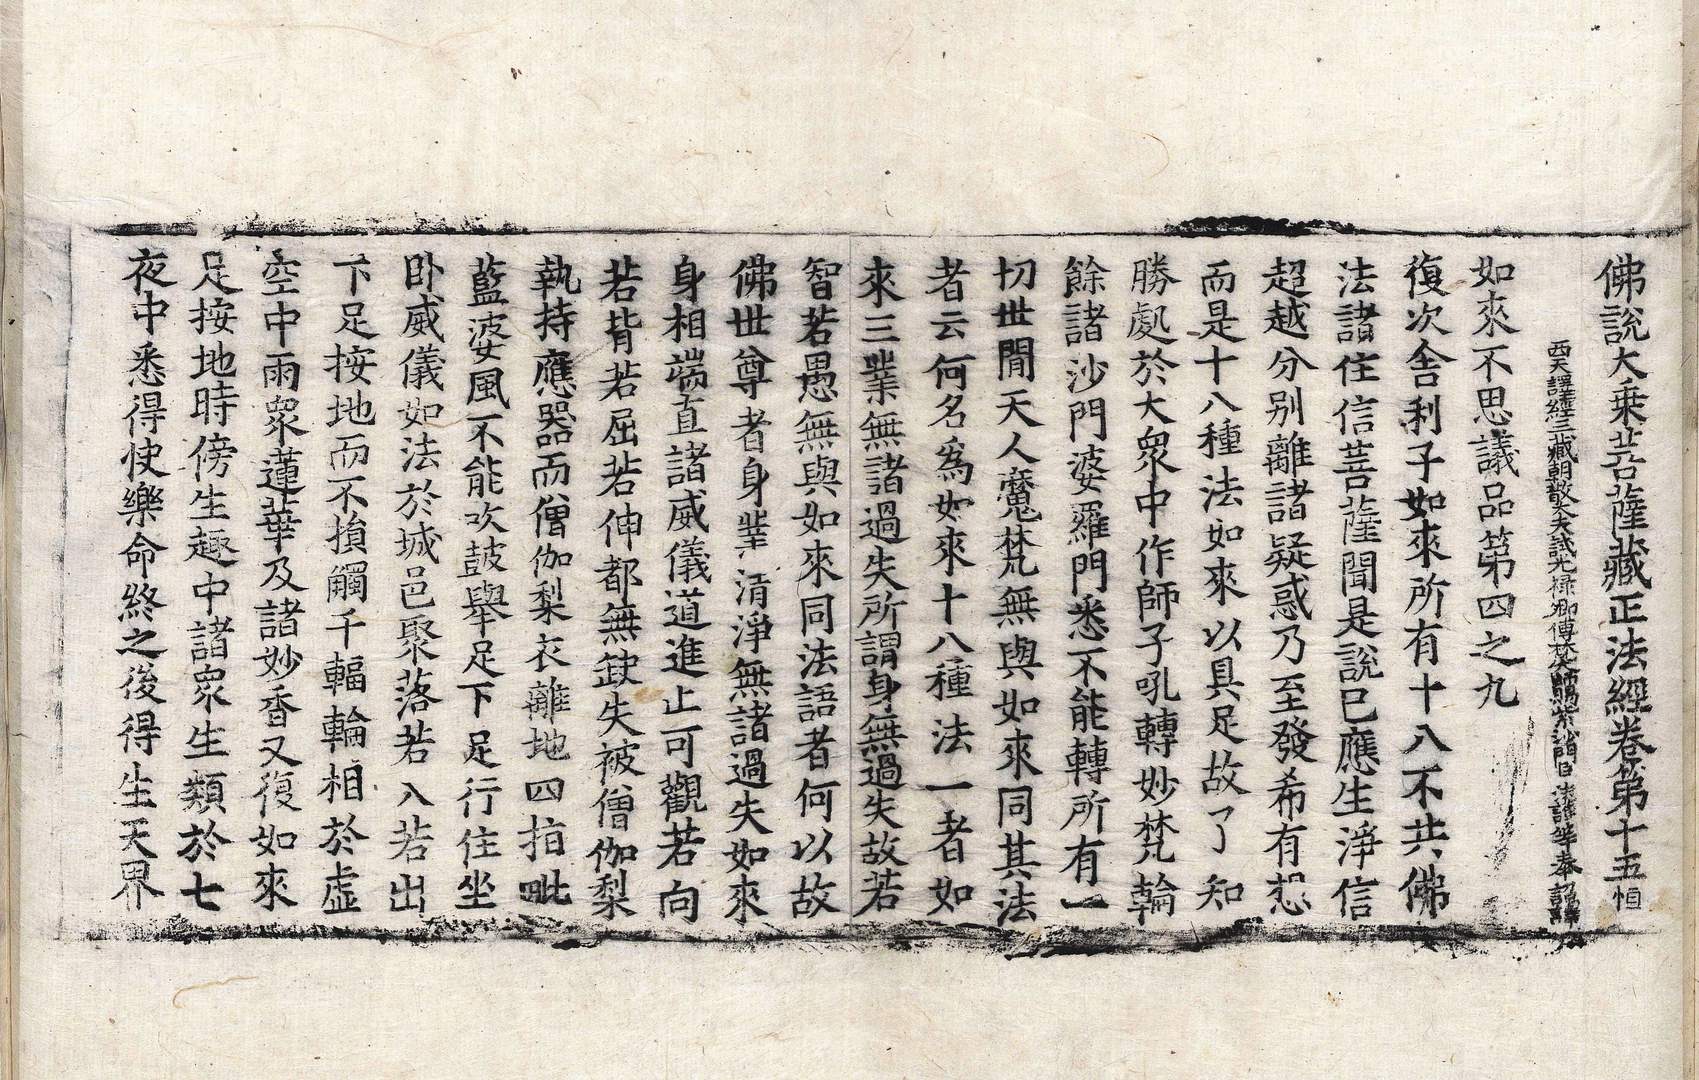 佛說大乘菩薩藏正法經卷第十五 恒
西天譯經三藏朝散大夫試光祿卿傳梵大師賜紫沙門臣法護等奉 詔譯
如來不思議品第四之九
復次舍利子如來所有十八不共佛
法諸住信菩薩聞是說已應生淨信
超越分别離諸疑惑乃至發希有想
而是十八種法如來以具足故了知
勝處於大衆中作師子吼轉妙梵輪
餘諸沙門婆羅門悉不能轉所有一
切世間天人魔梵無與如來同其法
者云何名為如來十八種法一者如
來三業無諸過失所謂身無過失故若
智若愚無與如來同法語者何以故
佛世尊者身業清淨無諸過失如來
身相端直諸威儀道進止可觀若向
若背若屈若伸都無缺失被僧伽梨
執持應器而僧伽梨衣離地四指毗
藍婆風不能吹鼓舉足下足行住坐
卧威儀如法於城邑聚落若入若出
下足按地而不損觸千輻輪相於虛
空中雨衆蓮華及諸妙香又復如來
足按地時傍生趣中諸衆生類於七
夜中悉得快樂命終之後得生天界